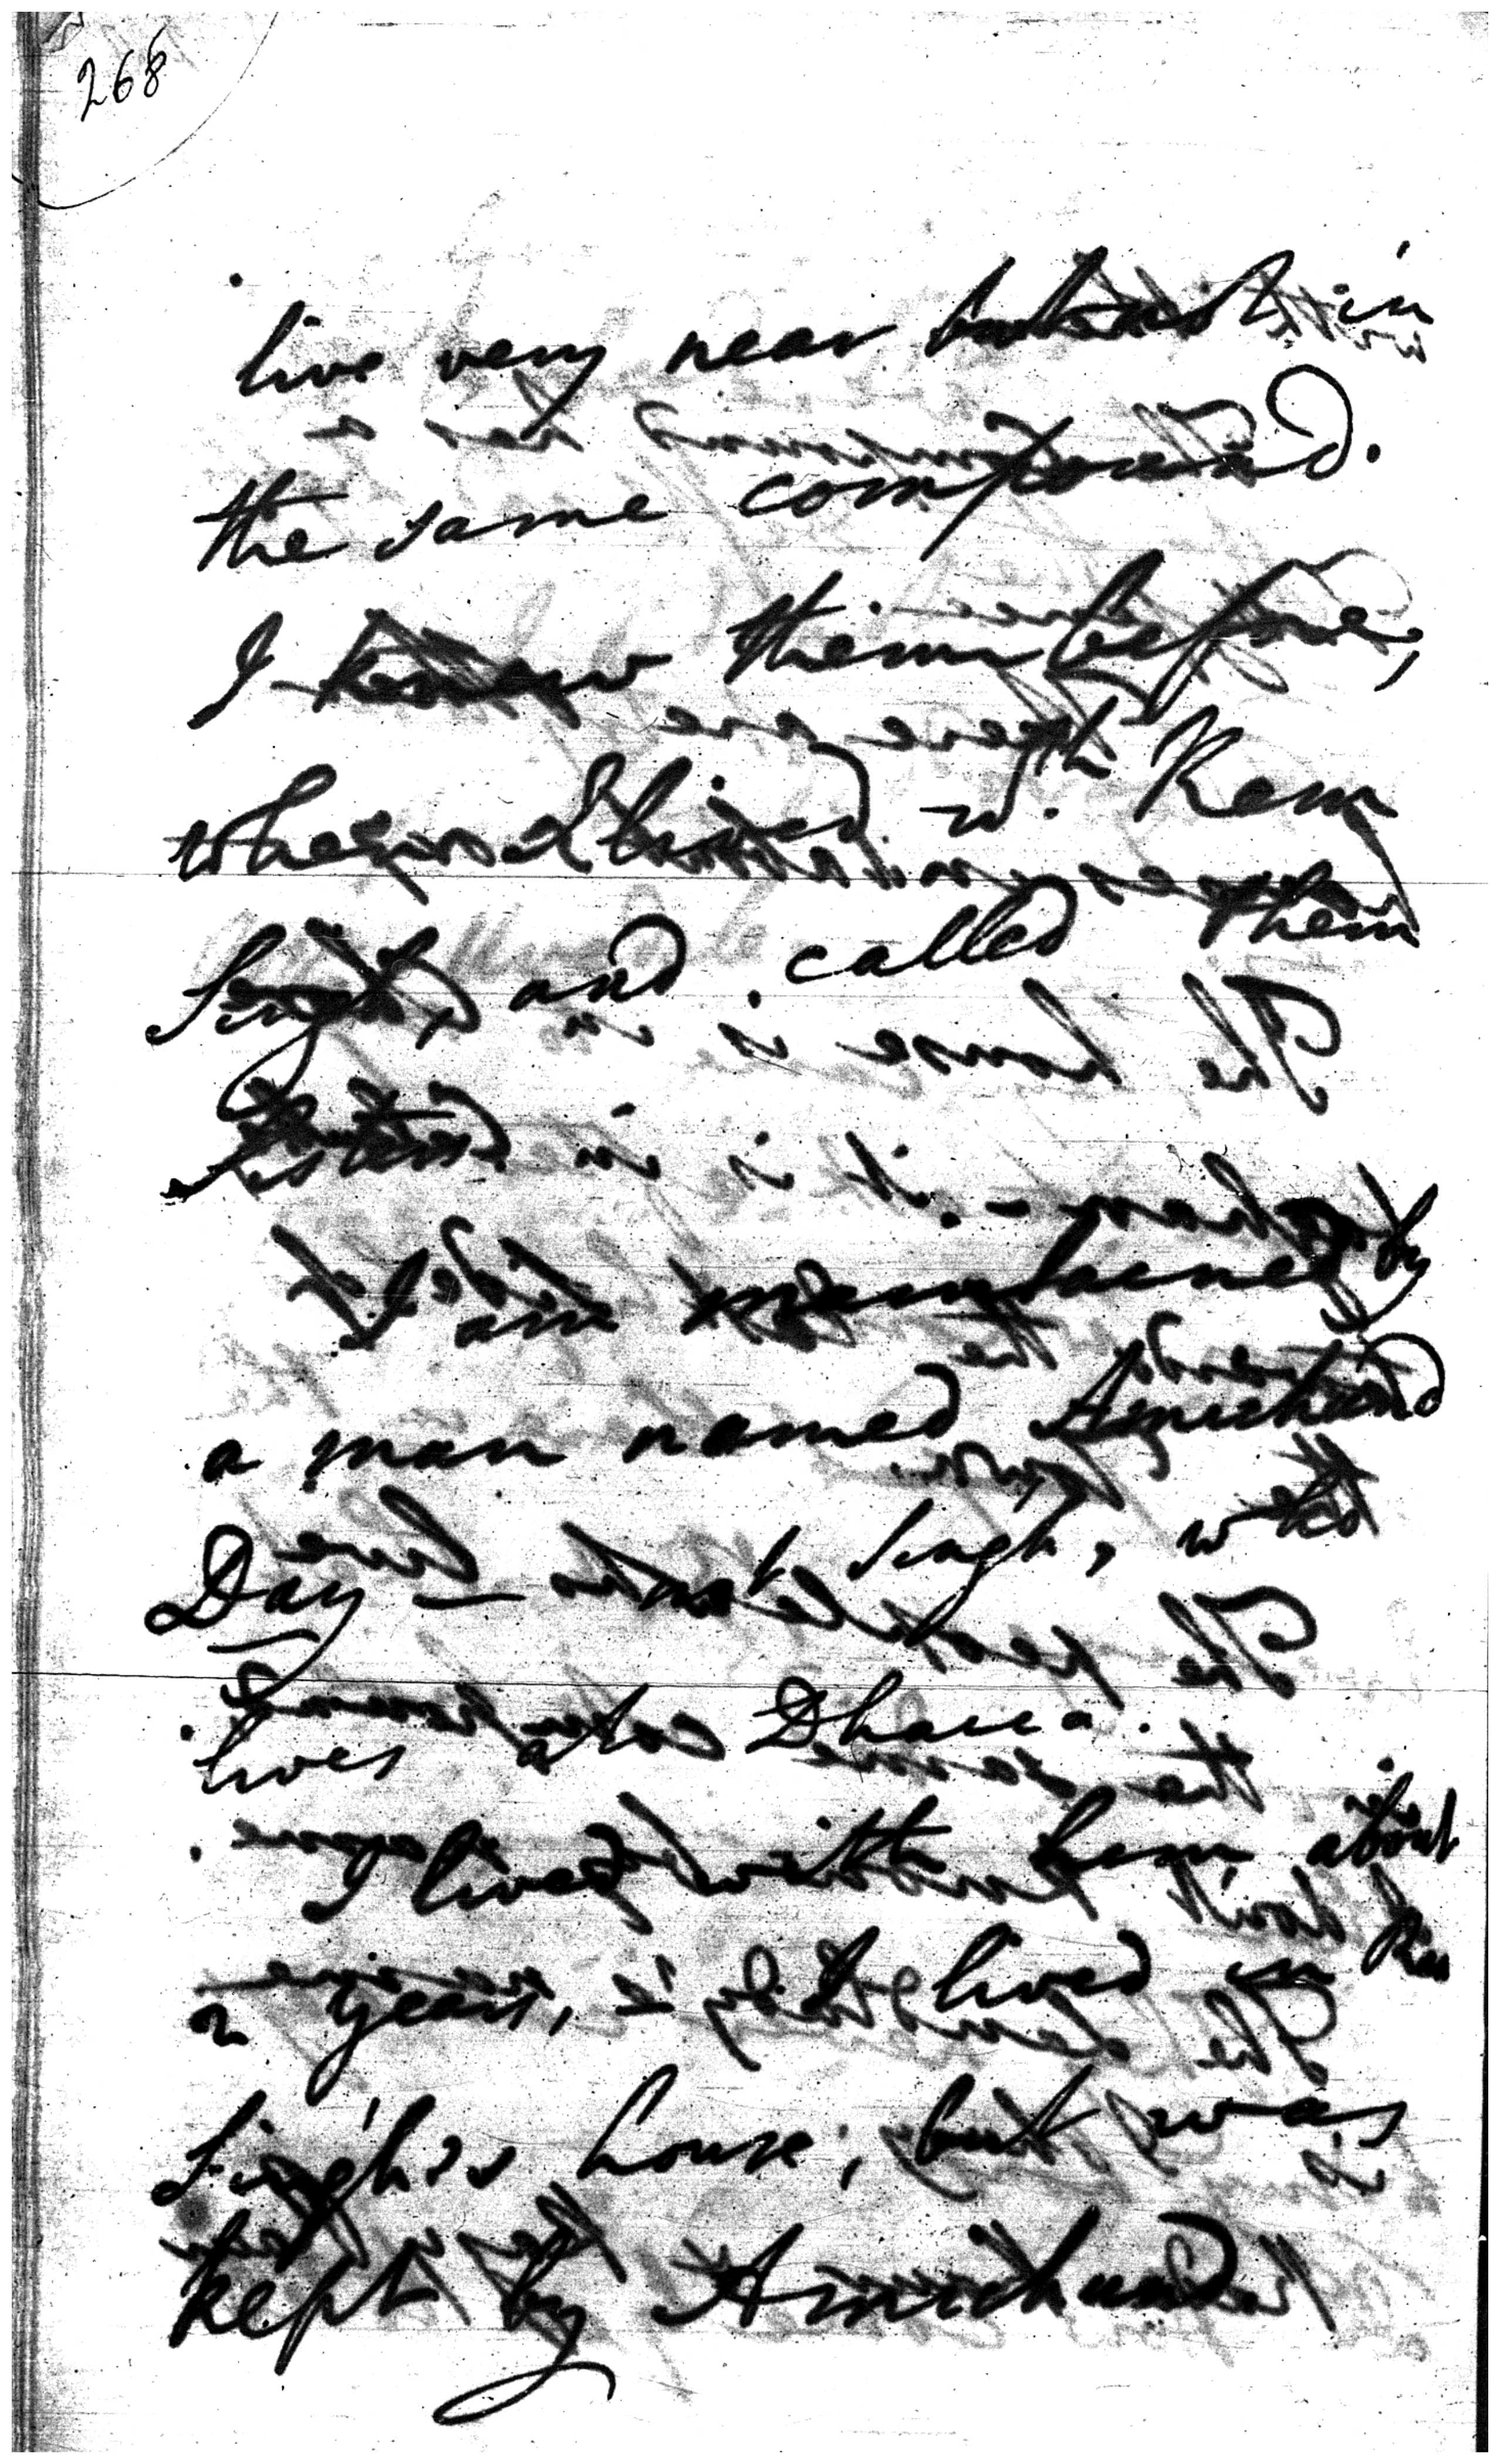 268
live very near but not in
the same compound.
I knew them before,
when I lived w. Kem
Singh, and called them
sisters
I am maintained by
a man named Amichand
Day – not Singh, who
lives at Dhacca.
I lived with him about
a year, & I lived in his
Singh's house, but was
kept by Amichund